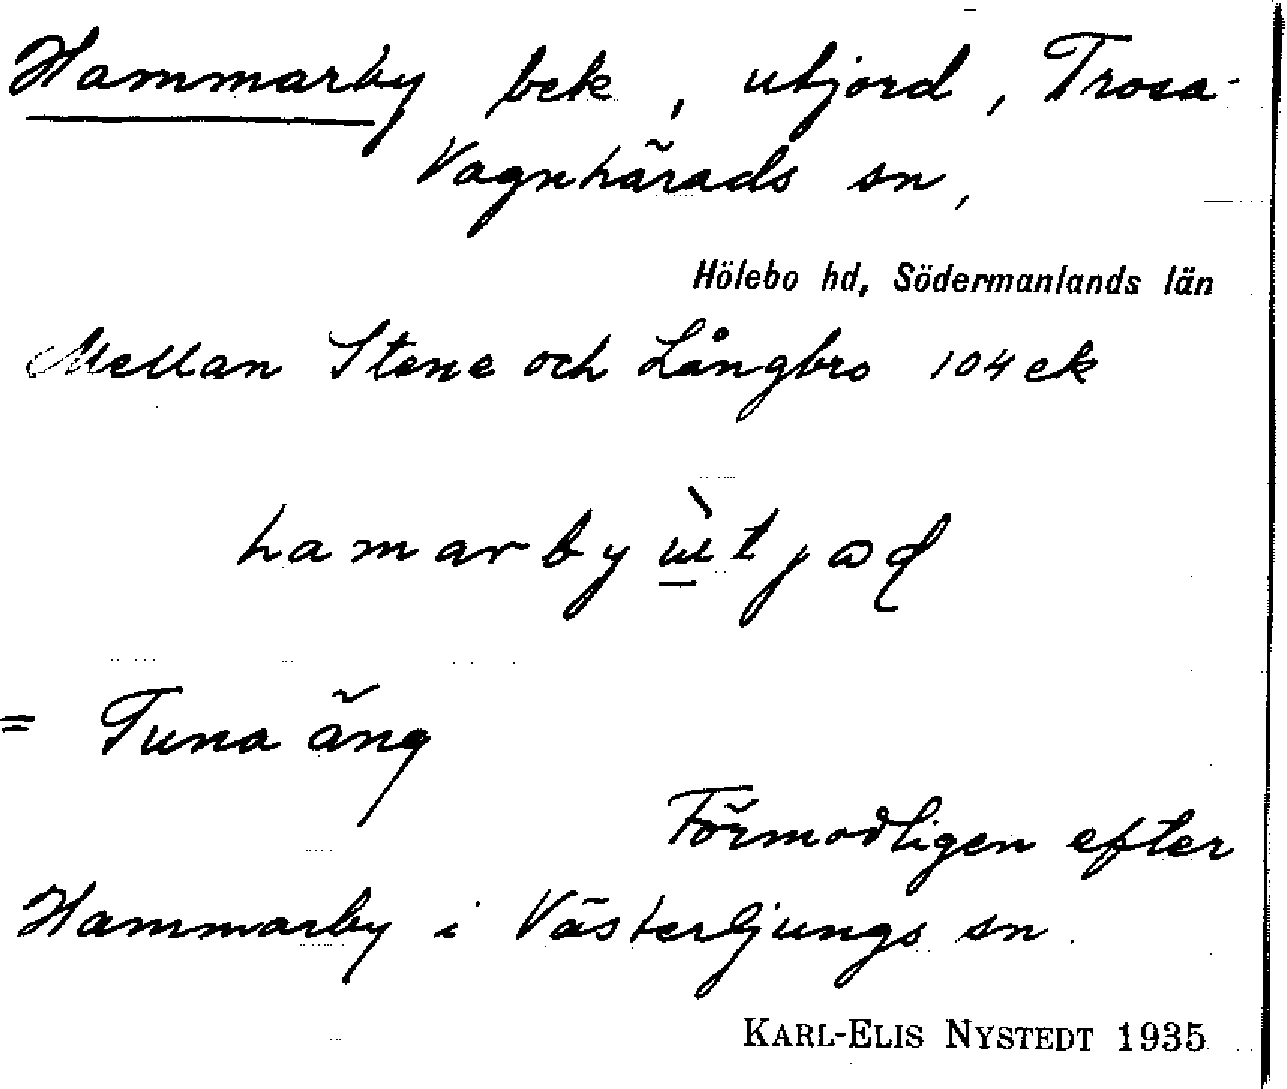 Hammarby bek, utjord, Trosa-
Vagnhärads sn,
Hölebo hd, Södermanlands län
Mellan Stene och Långbro 104 ek
hamarby
= Tuna äng
Förmodligen efter
Hammarby i Västerljungs sn
KARL-ELIS NYSTEDT 1935